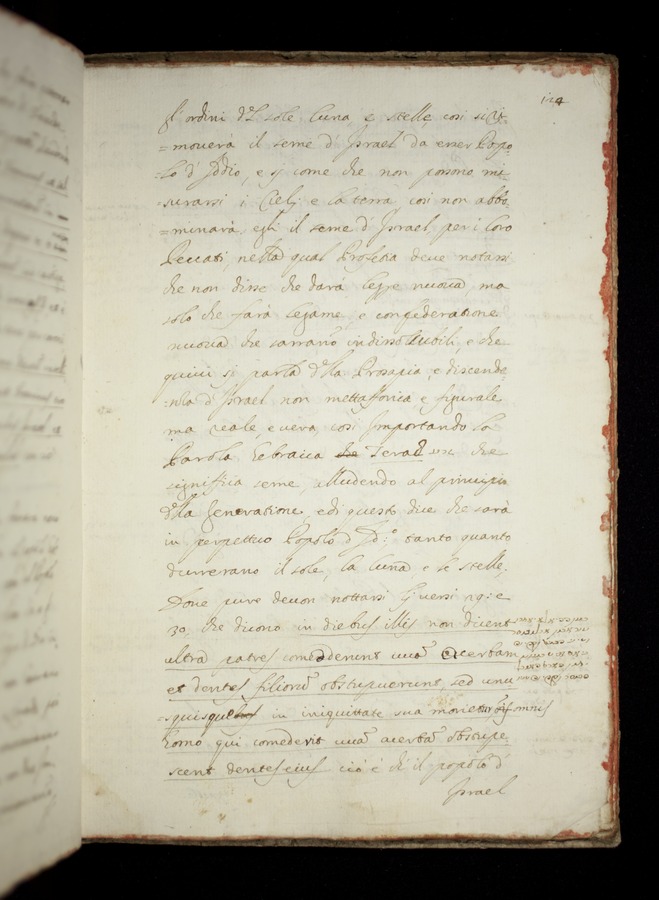 124
gl'ordini del sole luna, e stelle, cosi si ri=
=moverà il seme d'Israel da esser Popo=
=lo d'Iddio, e si come che non possono mi=
surarsi i Cieli e la terra, cosi non abbo=
=minarà egli il seme d'Israel, per i loro
Peccati, nella qual Profetia deve notarsi
che non disse che darà legge nuova, ma
solo che farà legame, e confederatione
nuova che sarrano indissolubili, e che
quivi si parla della Prosapia, e discende=
=nza d'Israel non mettafforica, e figurale
ma reale, e vera, cosi Importando la
Parola Hebraica che Terah che
significa seme, alludendo al principio
della Generatione, e di questo dice che sarà
in perpettuo Popolo d'Id:º tanto quanto
durerano il sole, la luna, e le stelle,
Dove pure devon nottarsi li versi 29: e
30. che dicono in diebus illis non dicent
ultra patres comedderunt uva acerbam
et dentes filiorū obstupuerunt sed unu
squisque in iniquittate sua morietur omnis
homo qui comederit uvā acerbā obstupe=
scent dentes eius cio è ch'il popolo d'
Israel